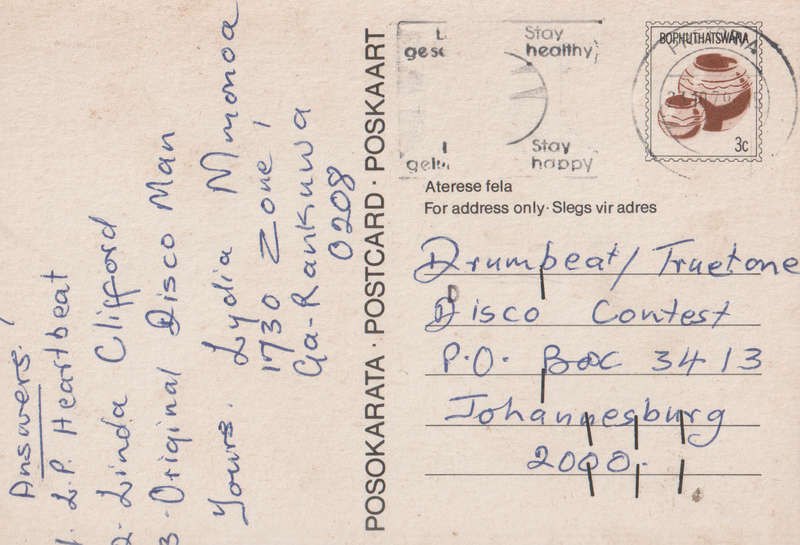 Answers.
1. L.P. Heartbeat
2. Linda Clifford
3. Original Disco Man
Yours. Lydia Mmonoa
1730 Zone 1,
Ga-Rankuwa
0208
POSOKARATA · POSTCARD · POSKAART
Stay
healthy
Stay
happy
BOPHUTHATSWANA
3c
Aterese fela
For address only · Slegs vir adres
Drumbeat/Truetone
Disco Contest
P.O. Box 3413
Johannesburg
2000.